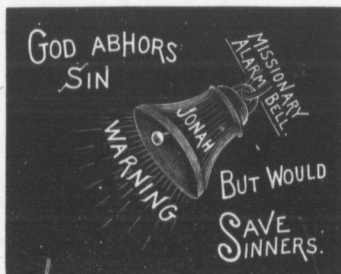 GOD ABHORS
SIN
MISSIONARY
ALARM BELL.
JONAH
WARNING
BUT WOULD
SAVE
SINNERS.